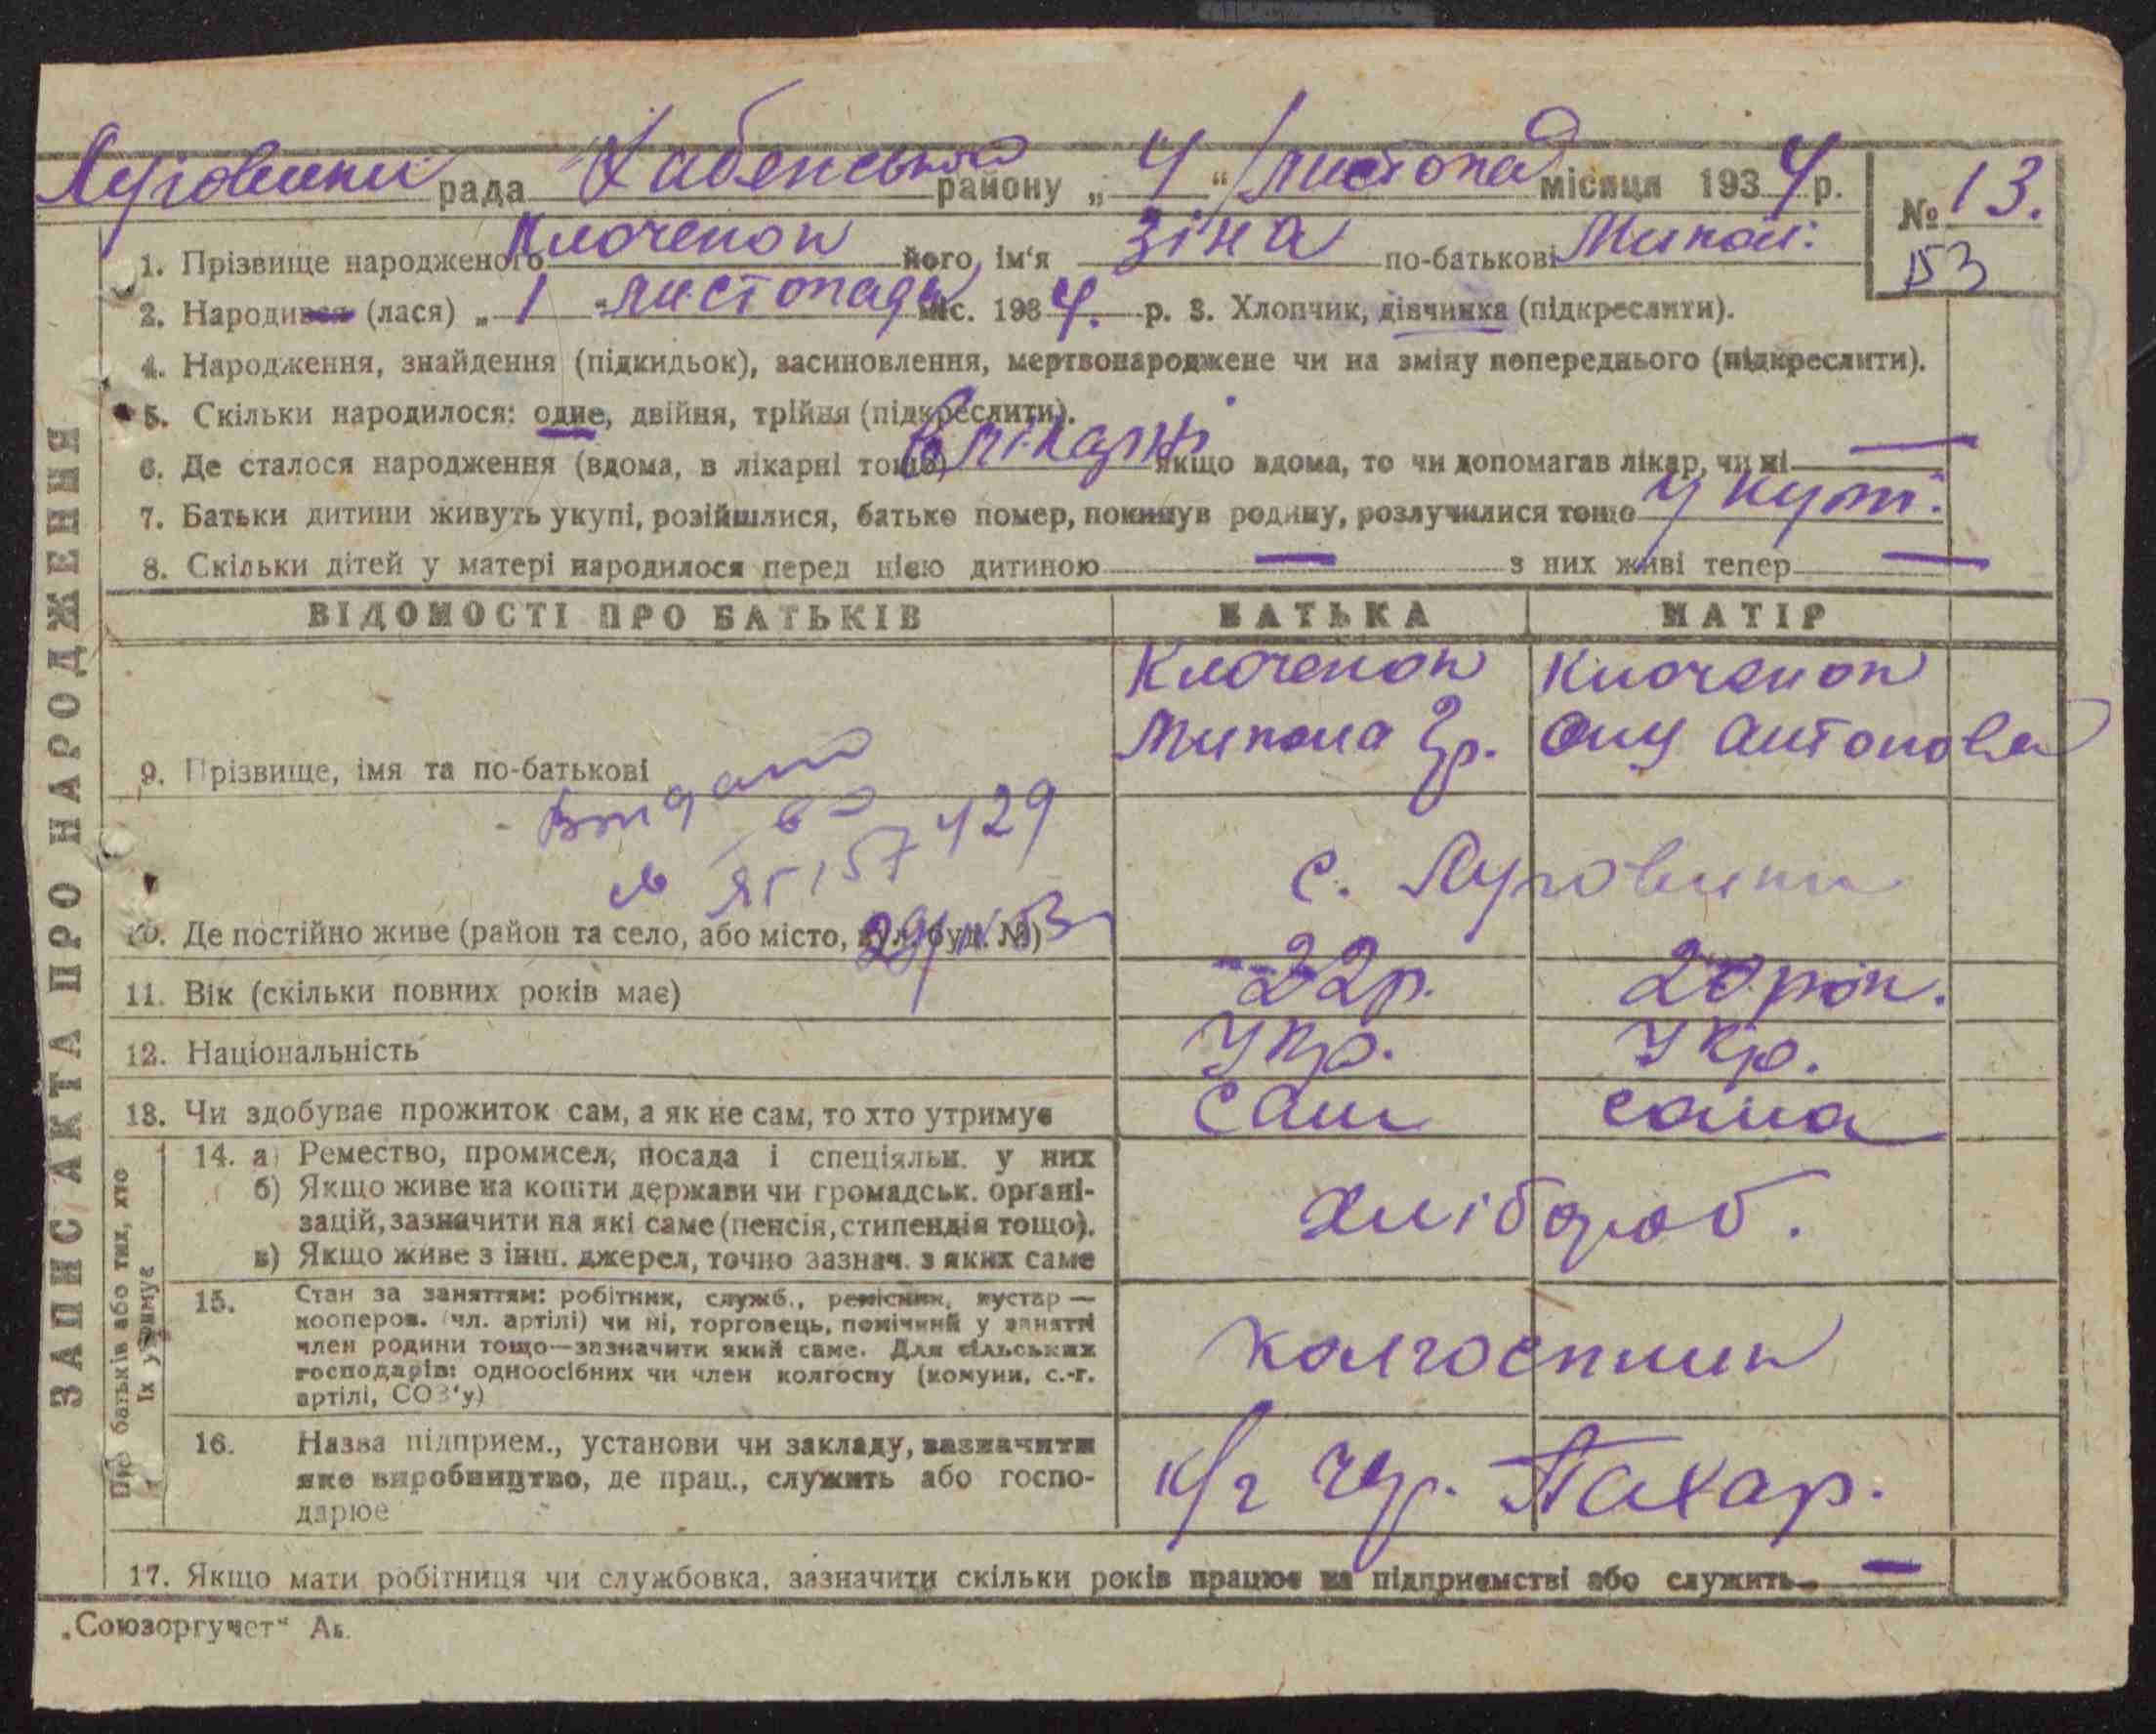 Луговики рада Хабенського району „ 4 “ листопад місяця 1934 р.
№ 13.
53
1. Прізвище народженого Клоченок його, ім'я Зіна по-батькові Микол:
2. Народився (лася) „ 1 “ листопада міс. 1934. р. 3. Хлопчик, дівчинка (підкреслити).
4. Народження, знайдення (підкидьок), засиновлення, мертвонароджене чи на зміну попереднього (підкреслити).
5. Скільки народилося: одне, двійня, трійня (підкреслити).
6. Де сталося народження (вдома, в лікарні тощо) в лікарні якщо вдома, то чи допомагав лікар, чи ні —
7. Батьки дитини живуть укупі, розійшлися, батько помер, покинув родину, розлучилися тощо у купі.
8. Скільки дітей у матері народилося перед цією дитиною — з них живі тепер —
ЗАПИС АКТА ПРО НАРОДЖЕННЯ
ВІДОМОСТІ ПРО БАТЬКІВ БАТЬКА МАТІР
Клоченок Клоченок
9. Прізвище, імя та по-батькові Микола Гр. Ону Антонова
429
с. Луговики
10. Де постійно живе (район та село, або місто, вул. буд. №)
11. Вік (скільки повних років має) 22р. 20 рок.
12. Національність Укр. Укр.
13. Чи здобуває прожиток сам, а як не сам, то хто утримує сам сама
Про батьків або тих, хто
їх утримує
14. а) Ремество, промисел, посада і спеціяльн. у них
б) Якщо живе на кошти держави чи громадськ. органі-
зацій, зазначити на які саме (пенсія, стипендія тощо).
в) Якщо живе з інш. джерел, точно зазнач. з яких саме
хлібороб.
15. Стан за заняттям: робітник, служб., ремісник, кустар —
кооперов. (чл. артілі) чи ні, торговець, помічний у занятті
член родини тощо—зазначити який саме. Для сільських
господарів: одноосібних чи член колгоспу (комуни, с.-г.
артілі, СОЗ'у)
колгоспник
16. Назва підприєм., установи чи закладу, зазначити
яке виробництво, де прац., служить або госпо-
дарює
к/г Чер. Пахар.
17. Якщо мати робітниця чи службовка, зазначити скільки років працює на підприємстві або служить —
„Союзоргучет“